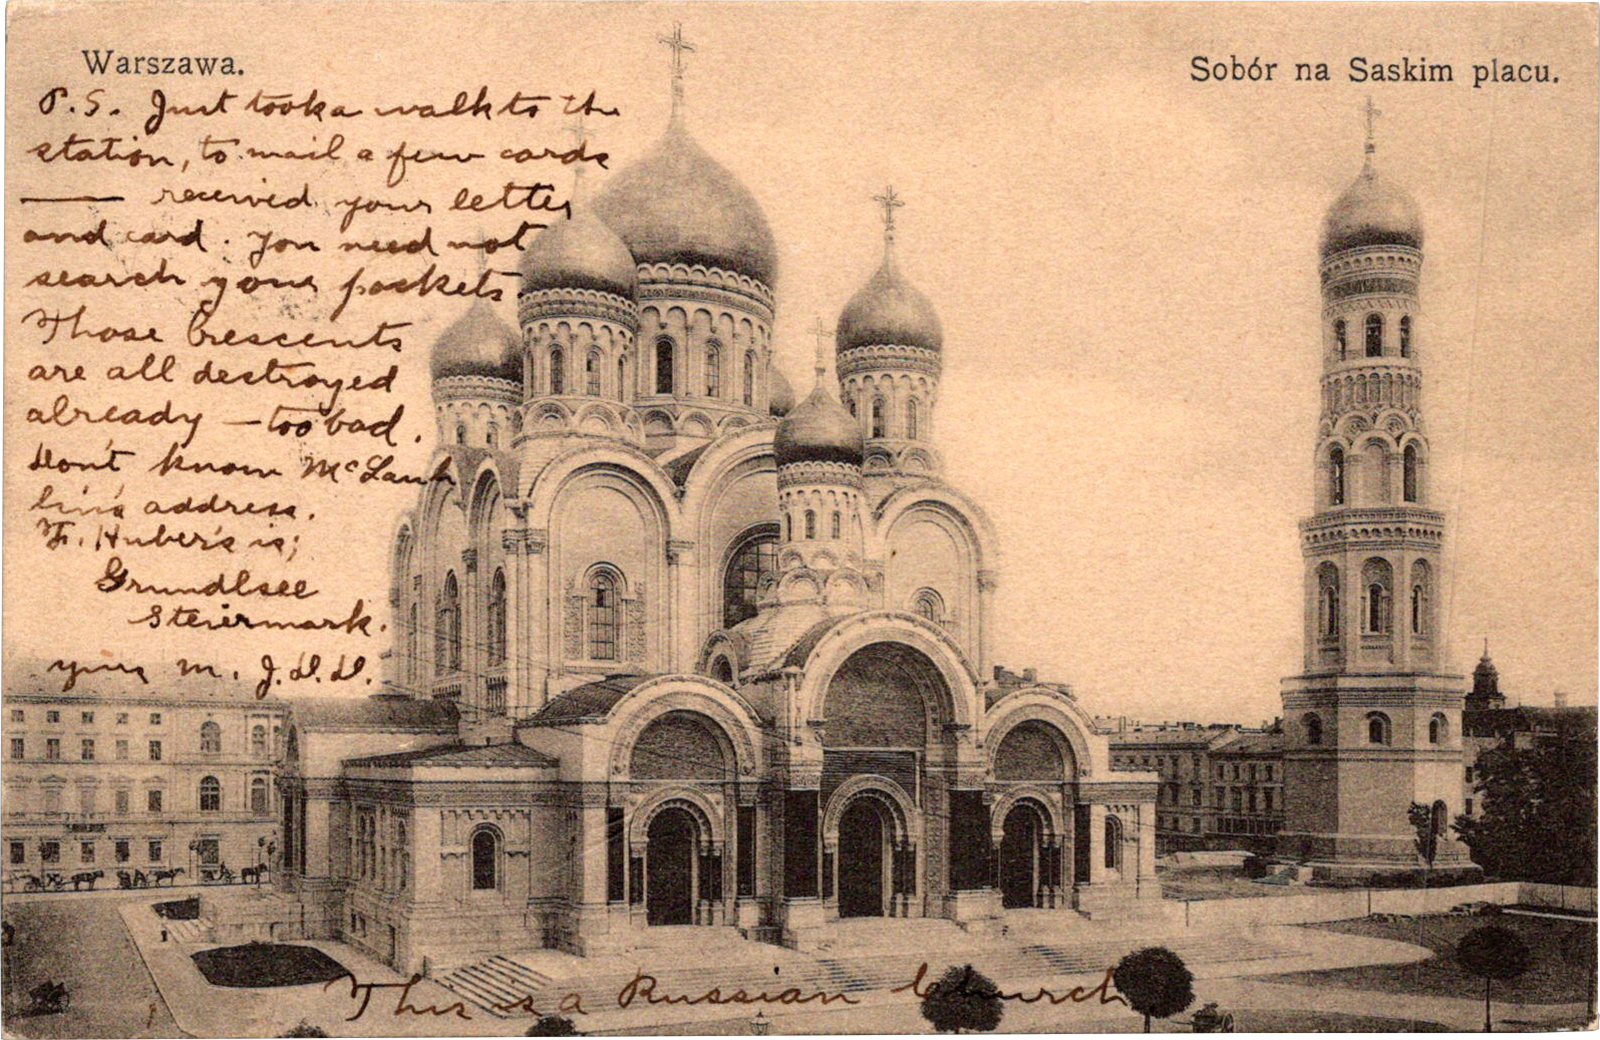 Warszawa.
Sobór na Saskim placu.
P.S. Just took a walk to the
station, to mail a few cards
— received your letter
and card. You need not
search your pockets.
Those Crescents
are all destroyed
already — too bad.
Don't know McLauh
lin's address.
F. Huber's is;
Grundlsee
Steiermark.
yours m. J.D.D.
This is a Russian Church